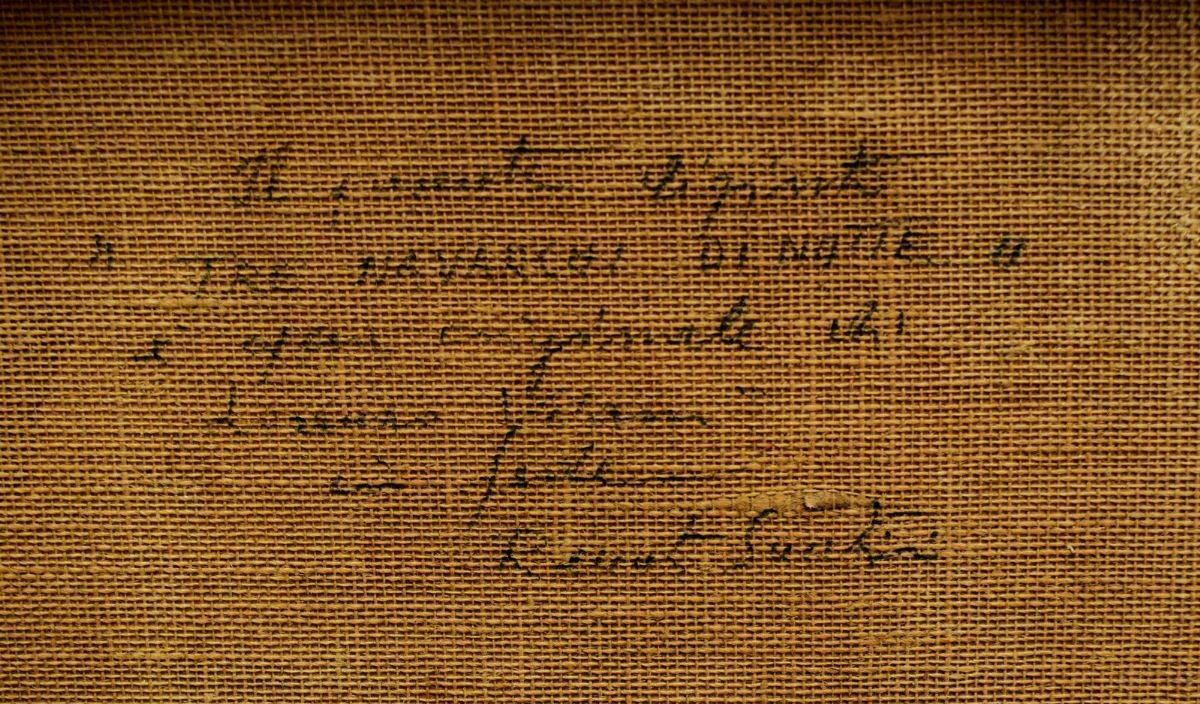 Il presente dipinto
" TRE NAVARCHI DI NOTTE "
è opera originale di
Lorenzo Viani
in fede